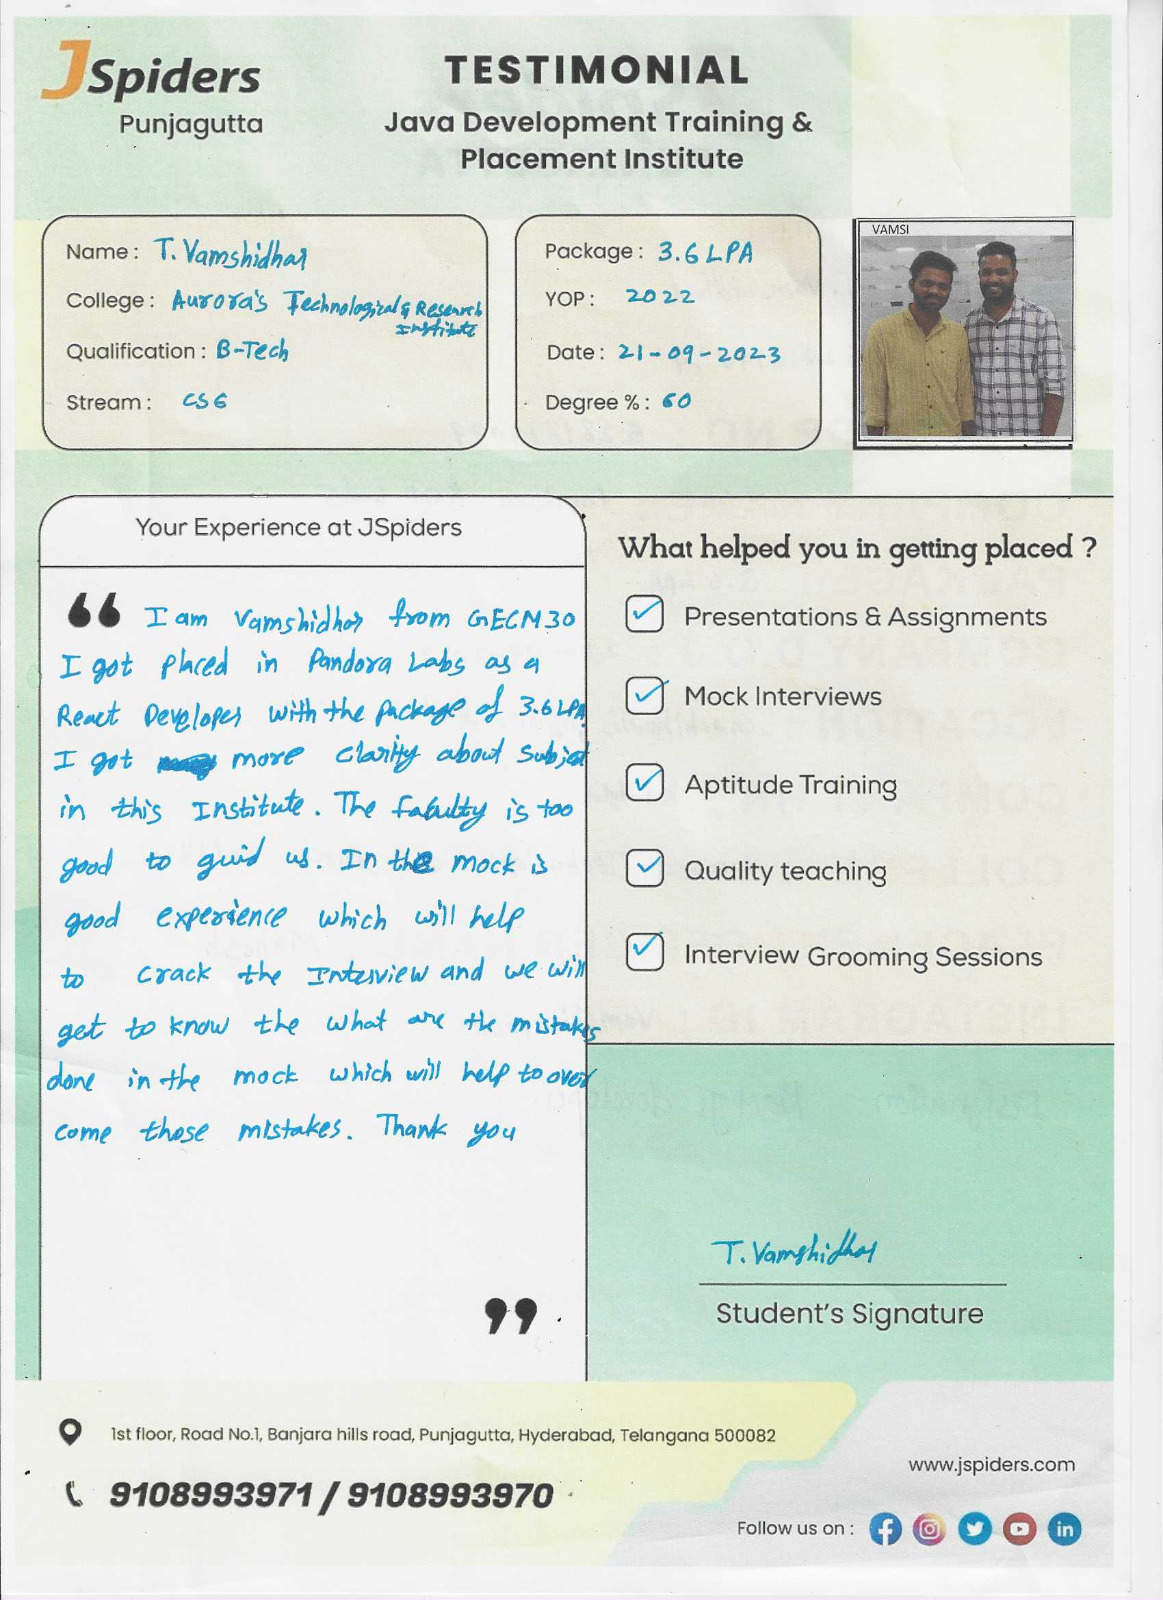 JSpiders
Punjagutta
TESTIMONIAL
Java Development Training &
Placement Institute
Name : T. Vamshidhar
College : Aurora's Technological & Research
Institute
Qualification : B-Tech
Stream : CSE
Package : 3.6 LPA
YOP : 2022
Date : 21-09-2023
Degree % : 60
VAMSI
Your Experience at JSpiders
“ I am Vamshidhar from GECM30
I got placed in Pandora Labs as a
React Developer with the package of 3.6 LPA
I got more clarity about subject
in this Institute. The faculty is too
good to guid us. In the mock is
good experience which will help
to crack the Interview and we will
get to know the what are the mistakes
done in the mock which will help to over
come those mistakes. Thank you
”
What helped you in getting placed ?
Presentations & Assignments
Mock Interviews
Aptitude Training
Quality teaching
Interview Grooming Sessions
T. Vamshidhar
Student's Signature
1st floor, Road No.1, Banjara hills road, Punjagutta, Hyderabad, Telangana 500082
9108993971 / 9108993970
www.jspiders.com
Follow us on :